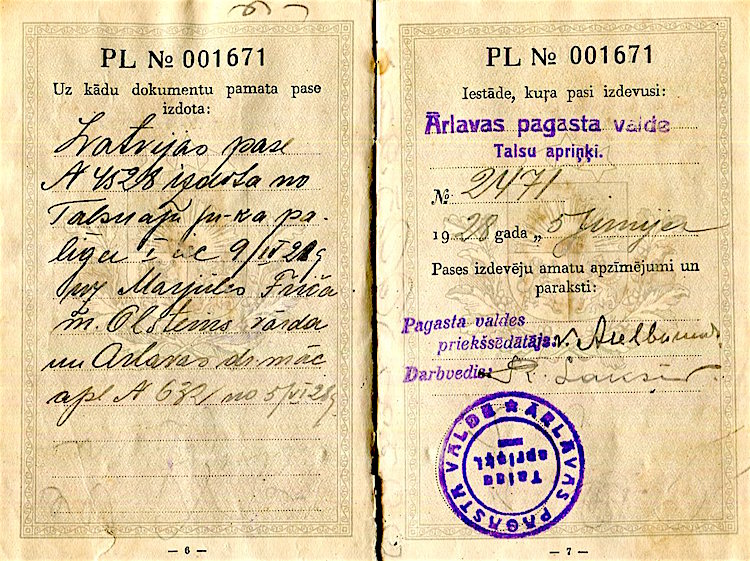 PL № 001671
Uz kādu dokumentu pamata pase
izdota:
Latvijas pase
A 4528 izdota no
Talsu apr. pr-ka pa-
līga I ie 9/
Marijas
m. Olstems vārda
un Ārlavas dr. māc
apl A no 5/VI 28 g
— 6 —
PL № 001671
Iestāde, kuŗa pasi izdevusi:
Ārlavas pagasta valde
Talsu apriņķi.
№ 2471
1928 gada „5 jūnija
Pases izdevēju amatu apzīmējumi un
paraksti:
Pagasta valdes
priekšsēdētājs:
Darbvedis:
ĀRLAVAS PAGASTA VALDE ★
Talsu
apriņķī
— 7 —